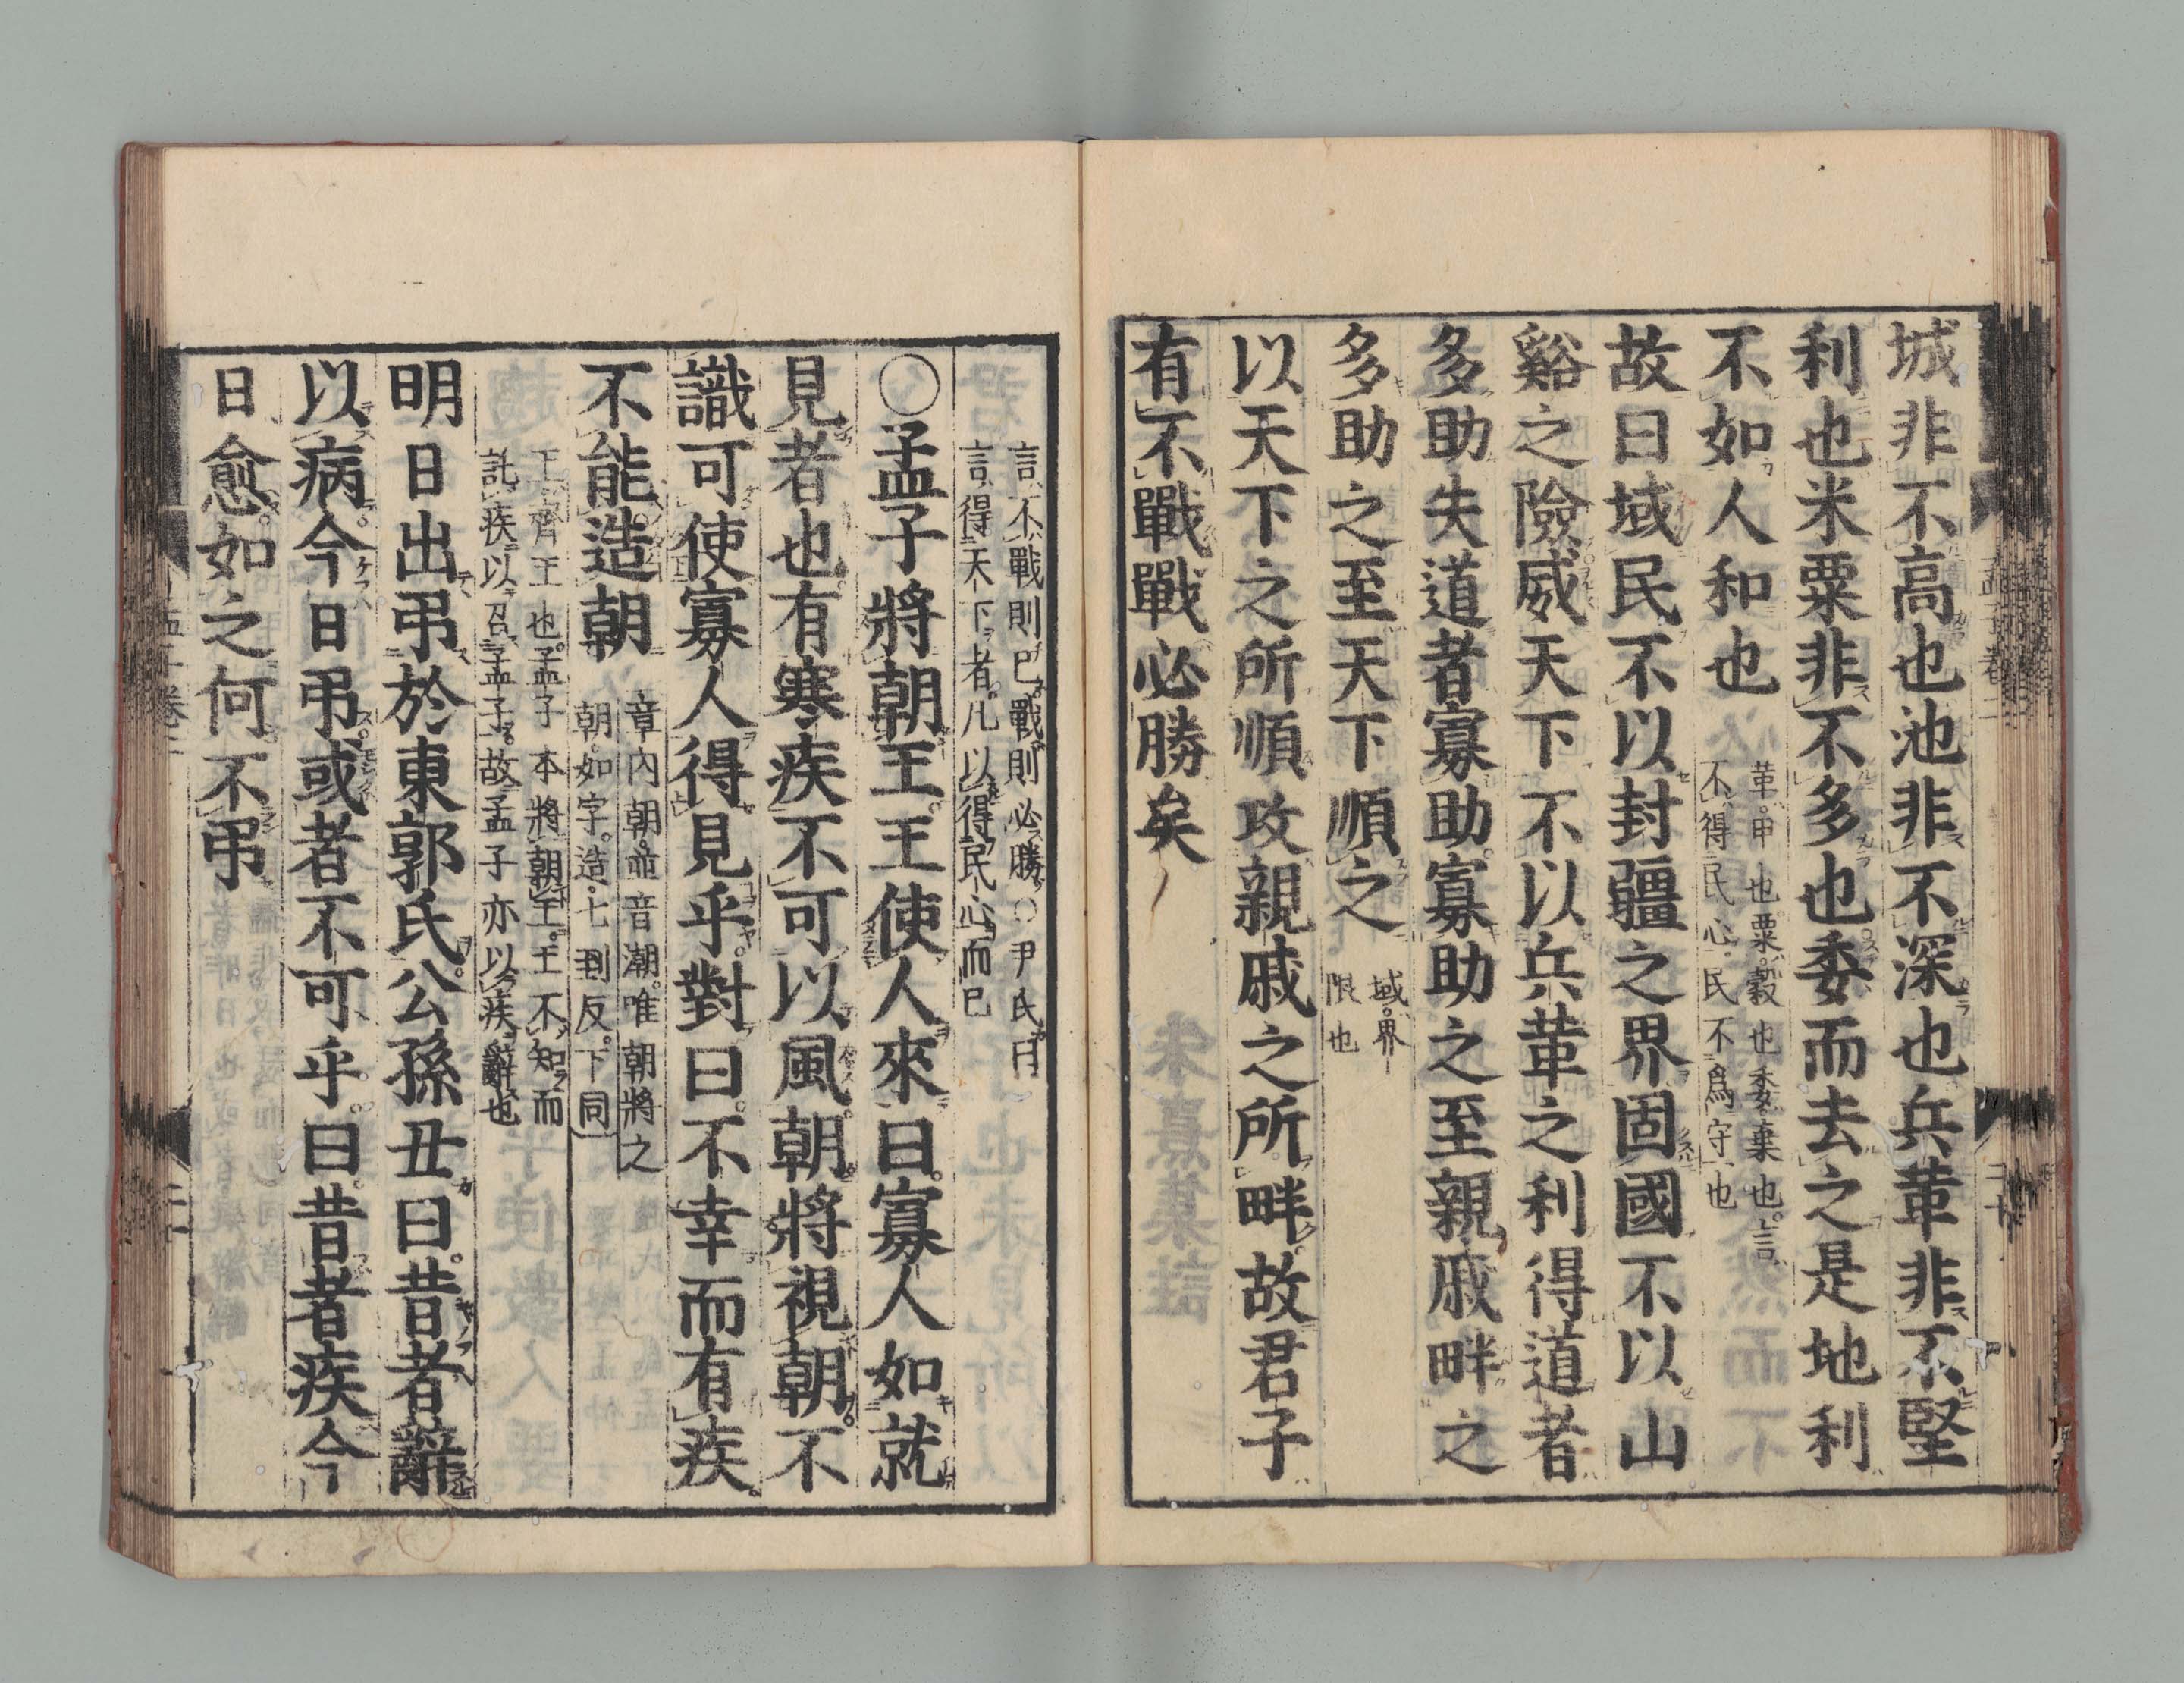 城非不高也池非不深也兵革非不堅
利也米粟非不多也委而去之是地利
不如人和也
革甲也粟穀也委棄也言
不得民心民不爲守也
故曰域民不以封疆之界固國不以山
谿之險威天下不以兵革之利得道者
多助失道者寡助寡助之至親戚畔之
多助之至天下順之
域界
限也
以天下之所順攻親戚之所畔故君子
有不戰戰必勝矣
言不戰則已戰則必勝○尹氏曰
言得天下者凡以得民心而已
○孟子將朝王王使人來曰寡人如就
見者也有寒疾不可以風朝將視朝不
識可使寡人得見乎對曰不幸而有疾
不能造朝
章內朝並音潮唯朝將之
朝如字造七到反下同
王齊王也孟子本將朝王王不知而
託疾以召孟子故孟子亦以疾辭也
明日出弔於東郭氏公孫丑曰昔者辭
以病今日弔或者不可乎曰昔者疾今
日愈如之何不弔